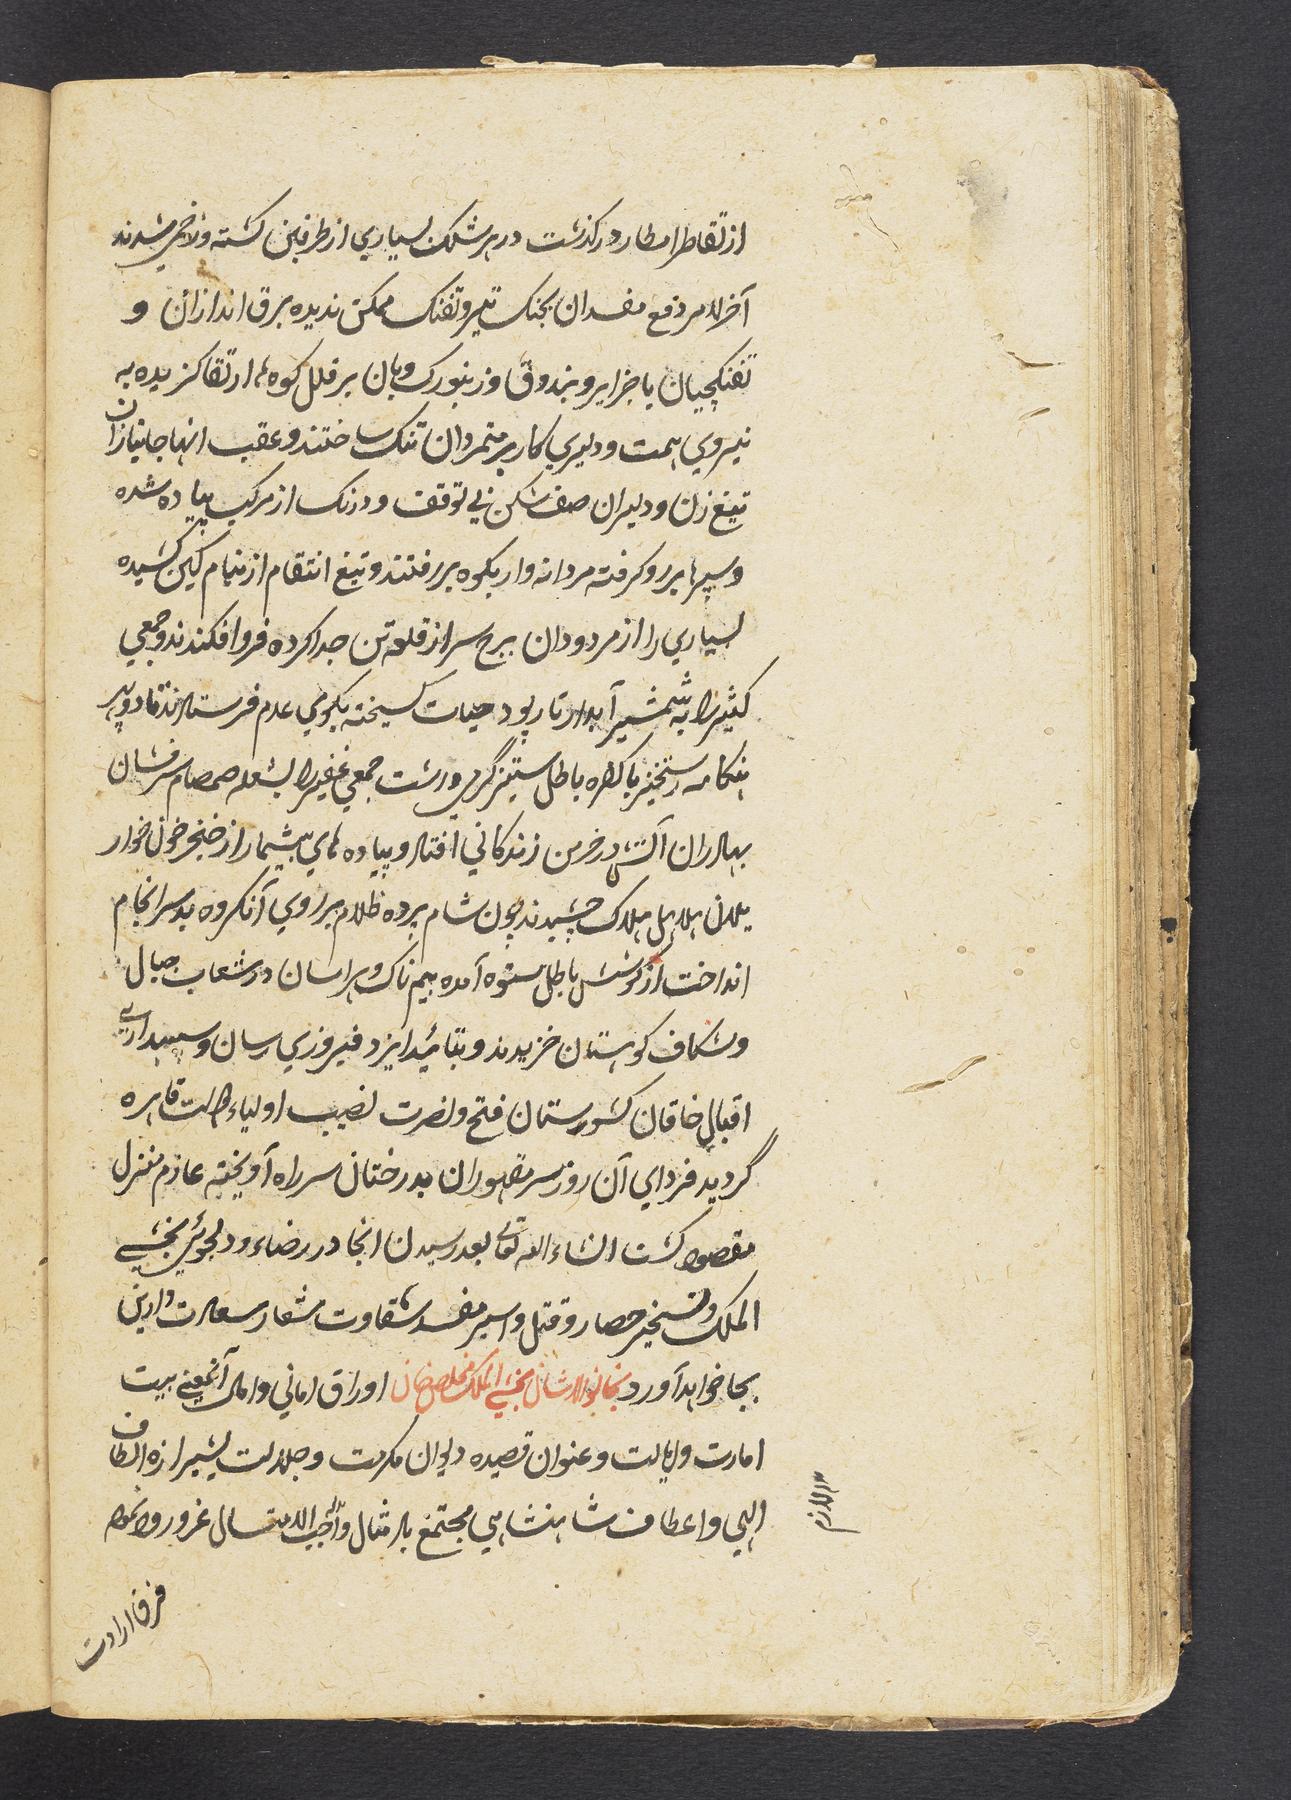 از تقاطر امطار درگذشت در هر شلک بسیاري از طرفین کشته و زخمي میشدند
آخر الامر دفع مفسدان بجنک تیر و تفنک ممکن ندیده برق اندازان و
تفنکچیان با جزایر و بندوق و زنبورک و بان بر قلل کوه ها ارتقا کزیده به
نیروي همت و دلیري کار بر متمردان تنک ساختند و عقب انها جانبازان
تیغ زن و دلیران صف شکن بي توقف و درنک از مرکب پیاده شده
و سپرها بر رو کرفته مردانه وار بکوه بر رفتند و تیغ انتقام از نیام کین کشیده
بسیاري را از مردودان برج سر از قلعه تن جدا کرده فرو افکندند و جمعي
کثیر را به شمشیر آبدار تار پود حیات کسیخته بکوي عدم فرستادند تا دو پهر
هنکامه رستخیز با کروه باطل ستیز گرمي داشت جمعي غفیر را بشعله صمصام سرفشان
بهادران آتش در خرمن زندکاني افتاد و پیاده هاي بیشمار از خنجر خون خوار
یلان هلاهل هلاک چشیدند چون شام پرده ظلام بر روي آنکروه بد سرانجام
انداخت از کوشش باطل ستوه آمده بیم ناک و هراسان در شعاب جبال
و شکاف کوهستان خزیدند و بتائید ایزد فیروزي رسان و سپهداري
اقبال خاقان کشورستان فتح و نصرت نصیب اولیاء دولت قاهره
گردید فرداي آن روز سر مقهوران بدرختان سر راه آویخته عازم منزل
مقصود کشت انشاء الله تعالی بعد رسیدن انجا در رضاء و دلجوئي بخشي
الملک و تسخیر حصار و قتل و اسیر مفسد شقاوت شعار سعادت دارین
بجا خواهد آورد بخانوالاشان بخشي الملک مخلص خان اوراق اماني و امال آنمعني بیت
امارت و ایالت و عنوان قصیده دیوان مکرمت و جلالت بشیرازه الطاف
الهي و اعطاف شاهنشاهي مجتمع باد مثال واجب الامتثال غرور و انمود
فرق ارادت